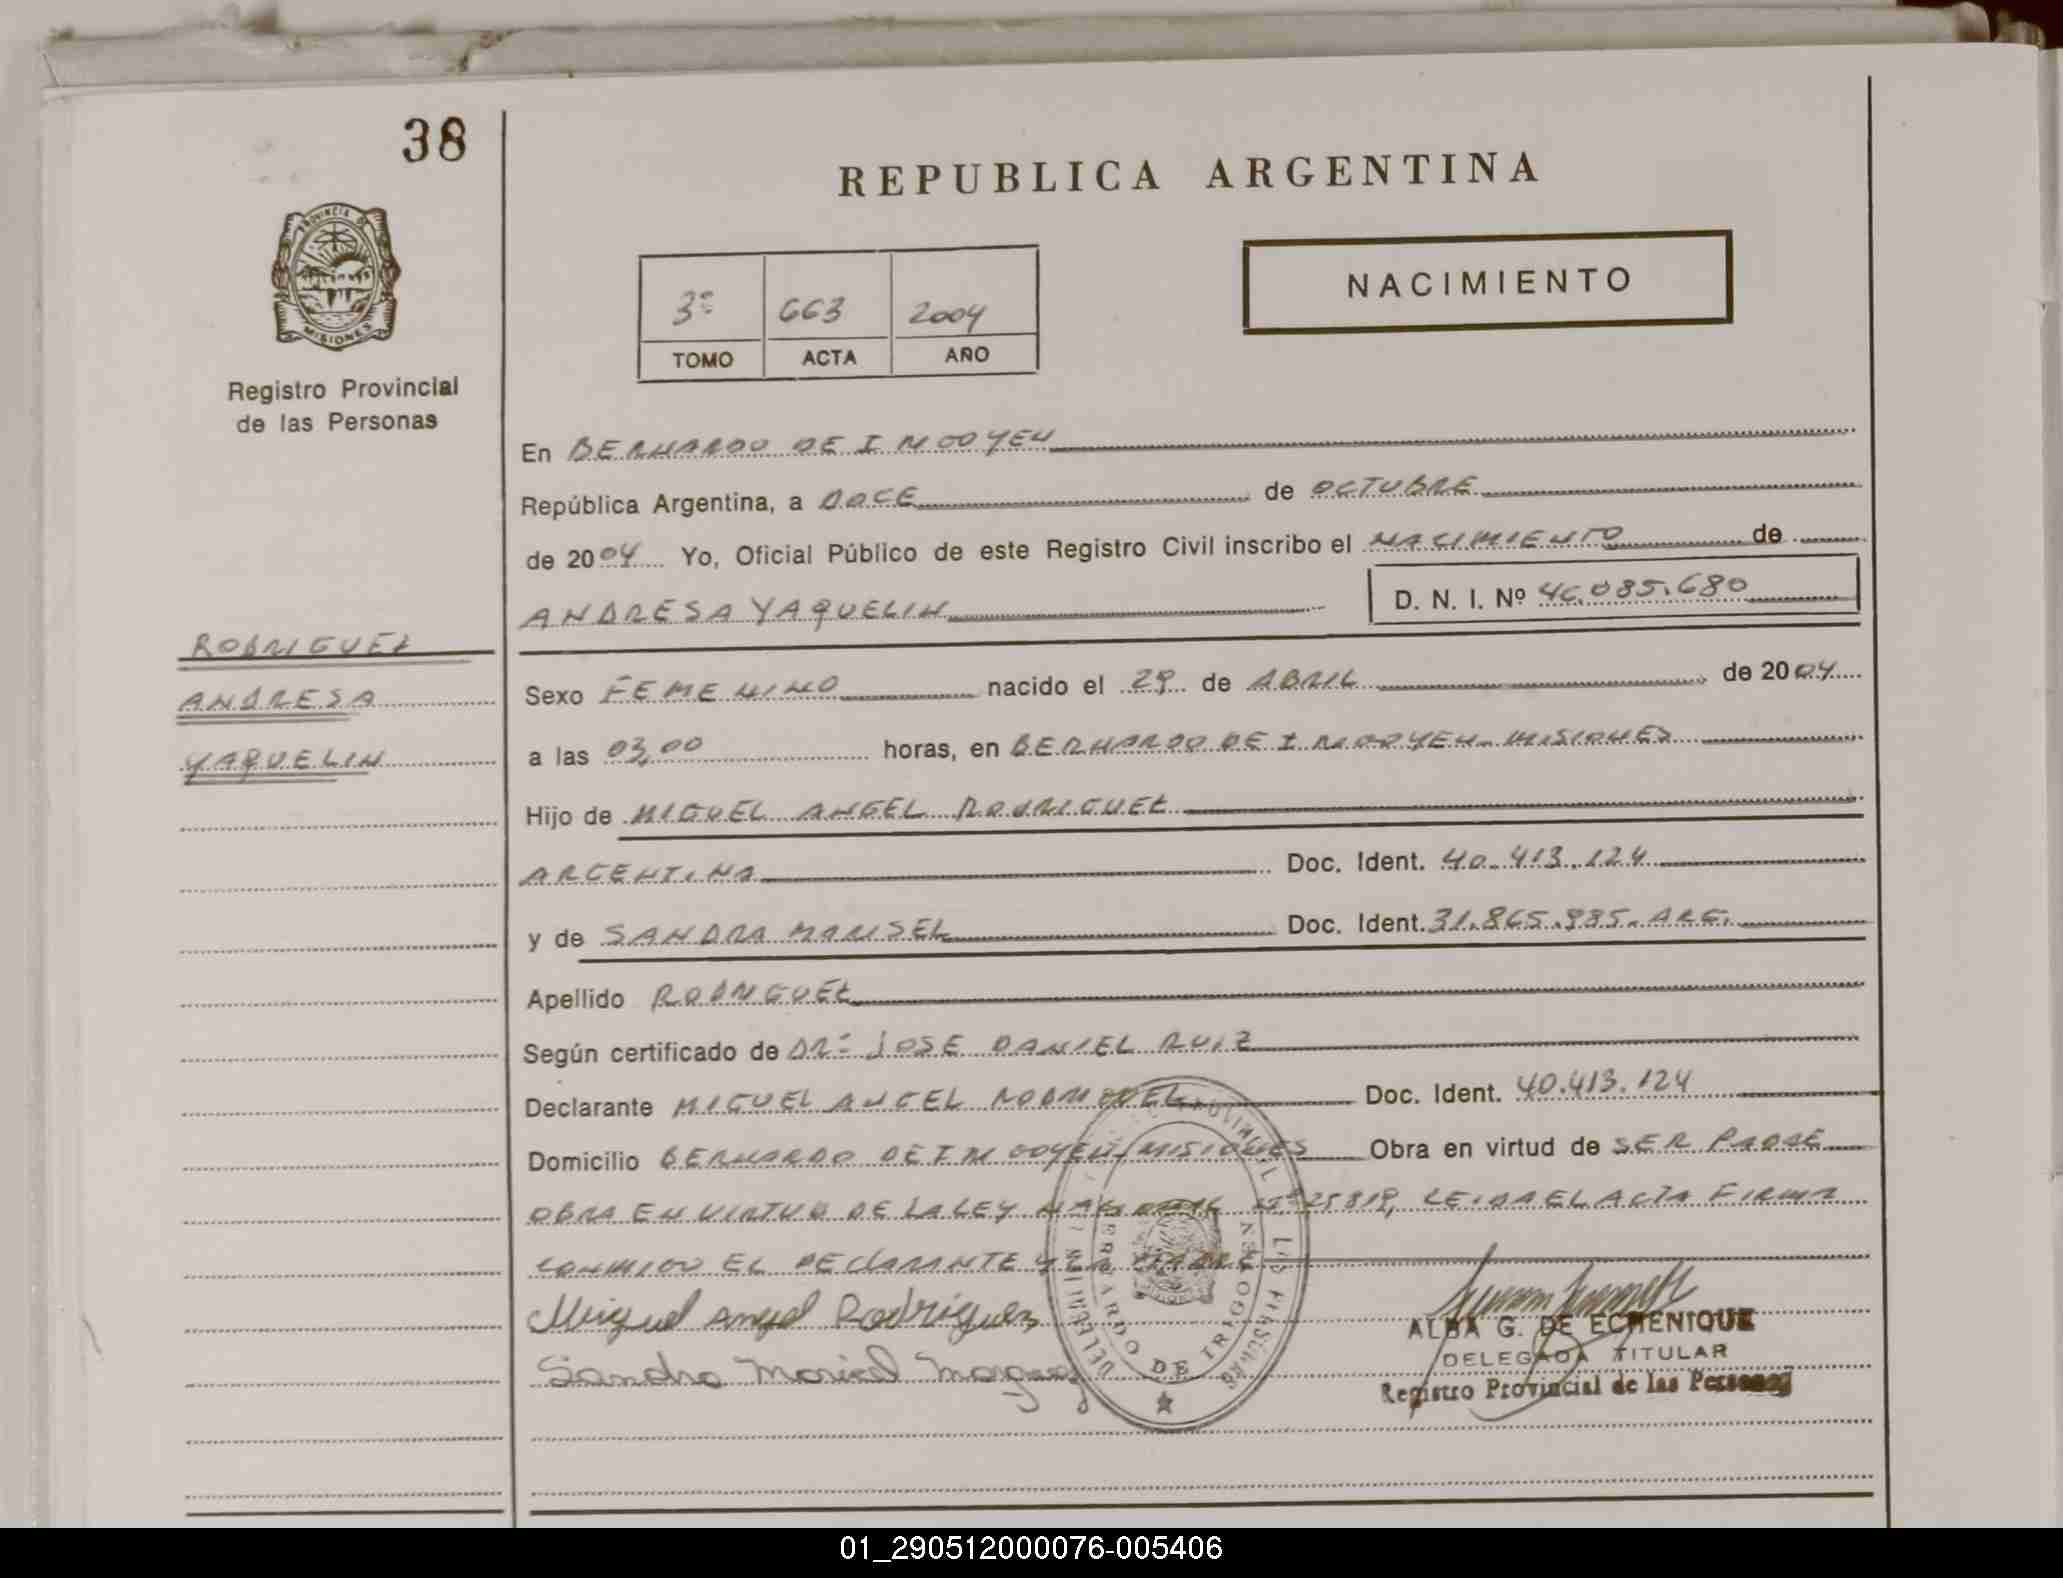 38
REPUBLICA ARGENTINA
PROVINCIA DE
MISIONES
Registro Provincial
de las Personas
3º 663 2004
TOMO ACTA AÑO
NACIMIENTO
En BERNARDO DE IRIGOYEN
República Argentina, a DOCE de OCTUBRE
de 2004 Yo, Oficial Público de este Registro Civil inscribo el NACIMIENTO de
ANDRESA YAQUELIN D. N. I. Nº 46.085.680
RODRIGUEZ
ANDRESA
YAQUELIN
Sexo FEMENINO nacido el 29 de ABRIL de 2004
a las 03,00 horas, en BERNARDO DE IRIGOYEN - MISIONES
Hijo de MIGUEL ANGEL RODRIGUEZ
ARGENTINA Doc. Ident. 40.413.124
y de SANDRA MARISEL Doc. Ident. 31.865.985. ARG.
Apellido RODRIGUEZ
Según certificado de DR. JOSE DANIEL RUIZ
Declarante MIGUEL ANGEL RODRIGUEZ Doc. Ident. 40.413.124
Domicilio BERNARDO DE IRIGOYEN - MISIONES Obra en virtud de SER PADRE
OBRA EN VIRTUD DE LA LEY NACIONAL Nº 25819, LEIDA EL ACTA FIRMA
CONMIGO EL DECLARANTE Y LA MADRE
Miguel Angel Rodriguez
Sandra Marisel
BERNARDO DE IRIGOYEN
ALBA G. DE ECHENIQUE
DELEGADA TITULAR
Registro Provincial de las Personas
01_290512000076-005406